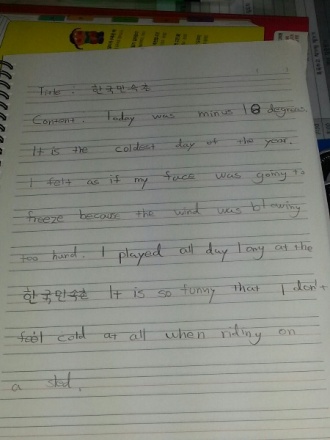 Title : 한국민속촌
Content. Today was minus 18 degrees.
It is the coldest day of the year.
I felt as if my face was going to
freeze because the wind was blowing
too hard. I played all day long at the
한국민속촌 It is so funny that I don't
feel cold at all when riding on
a sled.